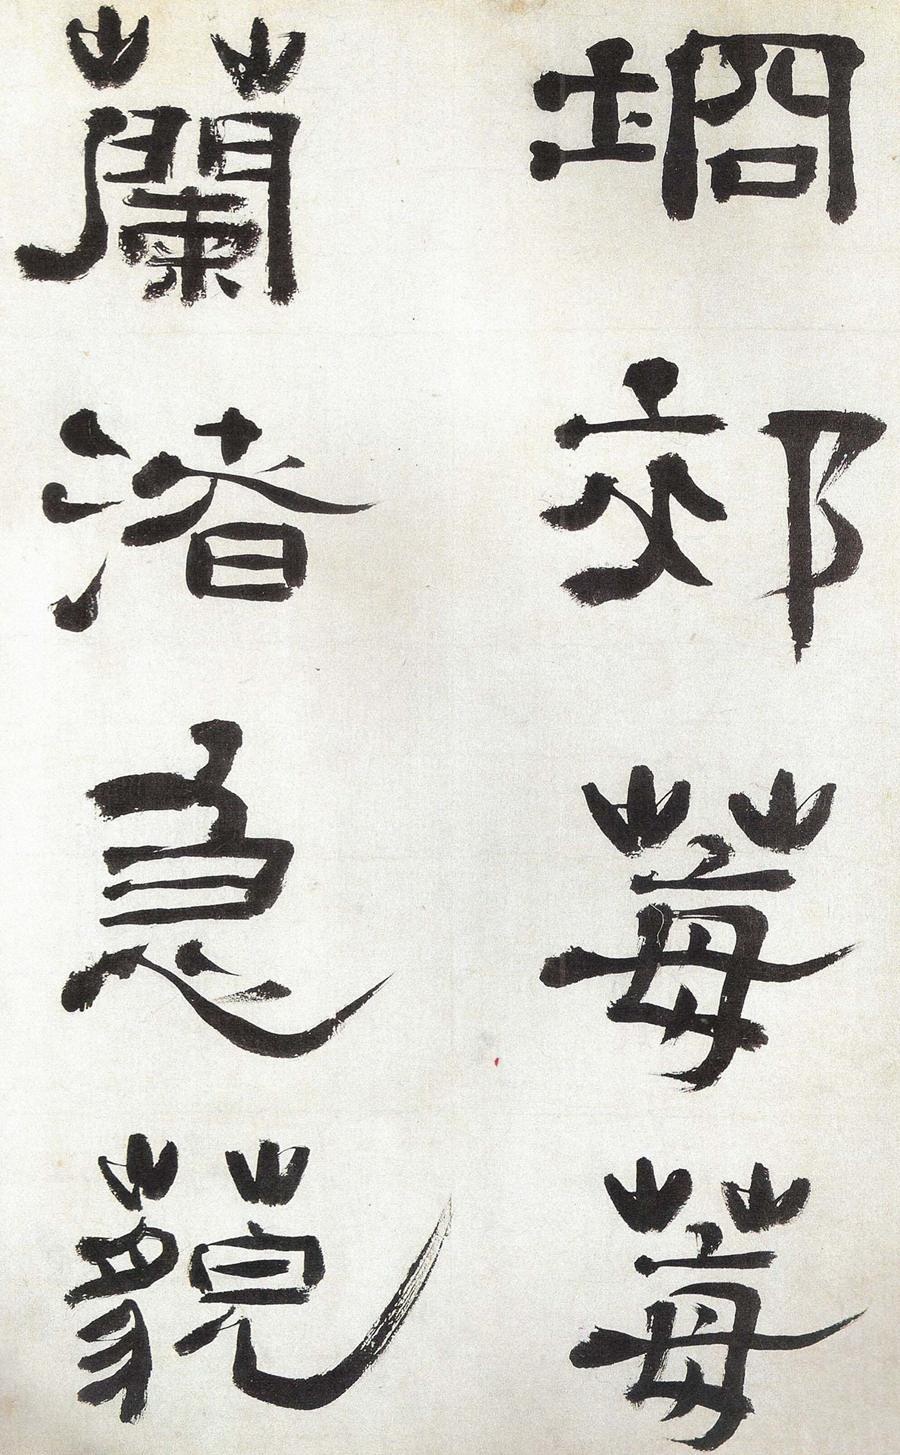 坰郊莓莓
蘭渚急藐